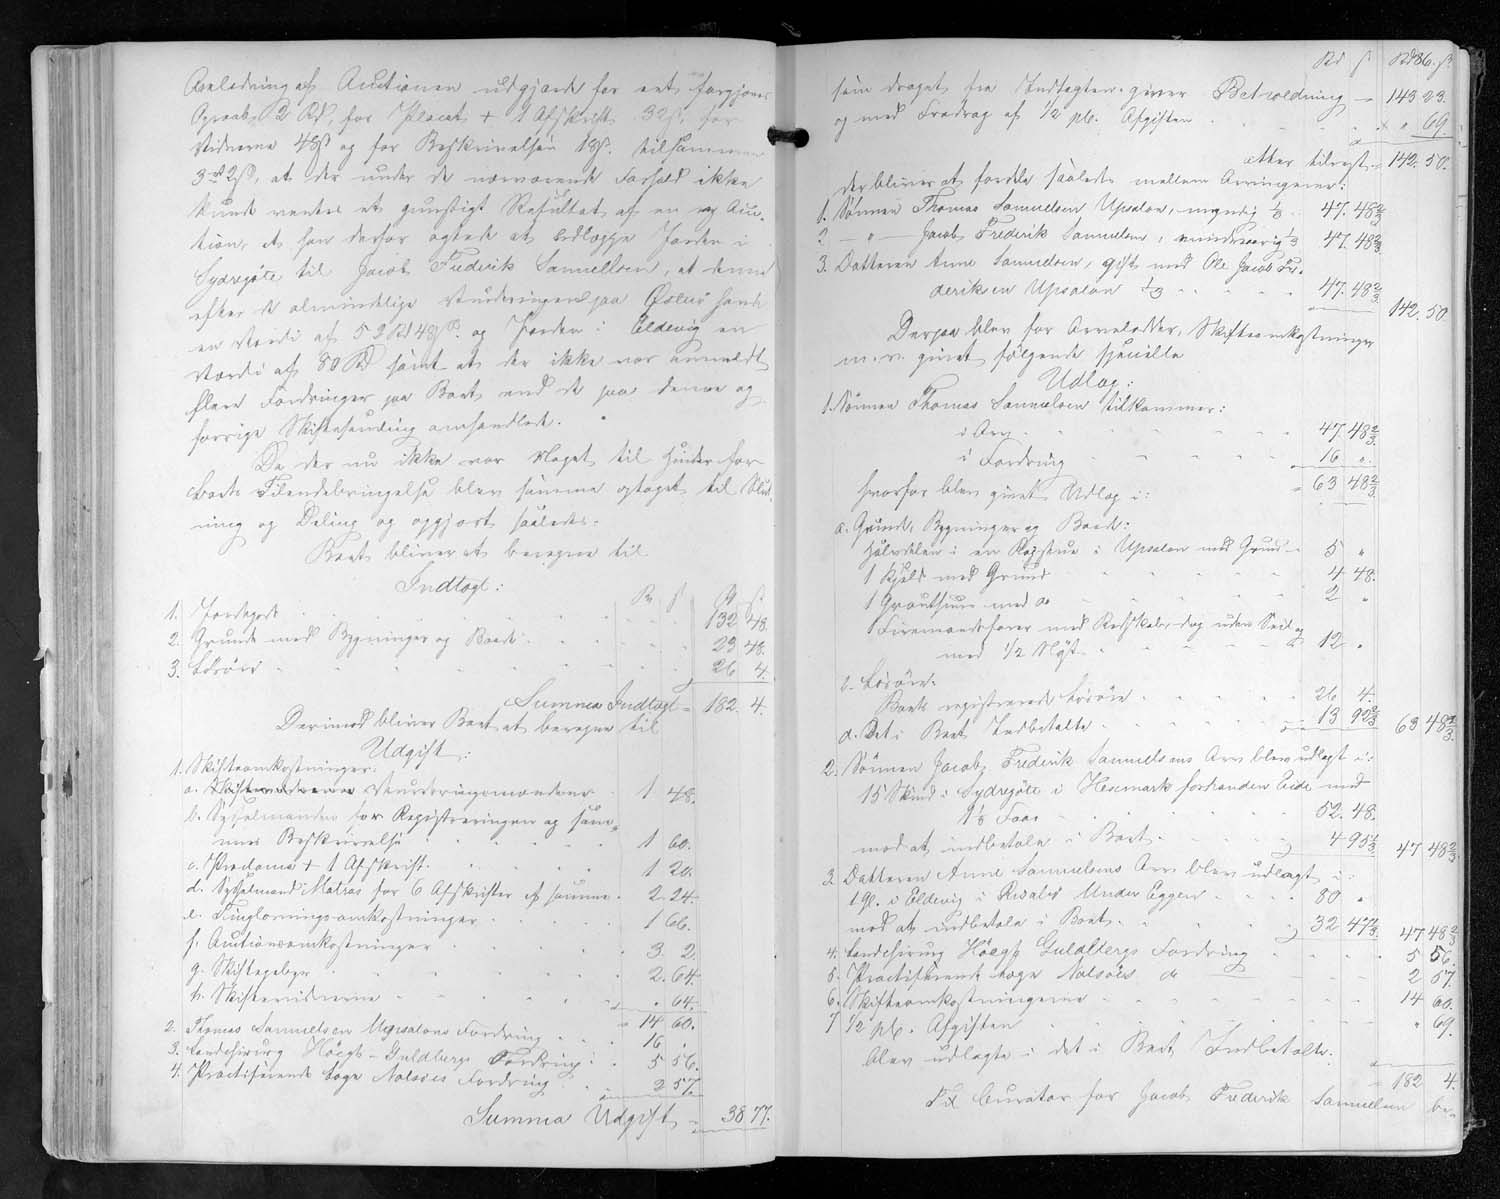 Anledning af Auctionen udgjorde for eet forgjæves
Opraab 2 Rd, for Placat + 1 Afskrift 32 ß, for
Vidnerne 48 ß og for Beskrivelsen 18 ß. tilsammen
3 Rd 2 ß, at der under de nærværende Forhold ikke
kunde ventes et gunstigt Resultat af en ny Auc-
tion, at han derfor agtede at udlægge Jorden i
Sydrgöte til Jacob Frederik Samuelsen, at denne
efter de almindelige Vurderingen paa Österö havde
en Værdi af 52 Rd 48 ß og Jorden i Eldevig en
Værdi af 80 Rd samt at der ikke var anmeldt
flere Fordringer paa Boet end de paa denne og
forrige Skiftesamling omhandlede.
Da der nu ikke var Noget til Hinder for
Boets Tilendebringelse blev samme optaget til Slut-
ning og Deling og opgjort saaledes:
Boet bliver at beregne til
Indtægt:
Rd ß Rd ß
1. Jordegods 132 48.
2. Grunde med Bygninger og Baad: 23 48.
3. Lösöre 26 4.
Summa Indtægt = 182. 4.
Derimod bliver Boet at beregne til
Udgift:
1. Skifteomkostninger:
a. Vurderingsmændene 1 48.
b. Sysselmanden for Registreringen og sam-
mes Beskrivelse 1 60.
c. Proclama + 1 Afskrift 1 20.
d. Sysselmand Matras for 6 Afskrifter af samme 2. 24.
e. Tinglæsnings-omkostninger 1 66.
f. Auctionsomkostninger 3. 2.
g. Skiftegebyr 2. 64.
h. Skiftevidnerne " 64.
= 14 60.
2. Thomas Samuelsen Upsalons Fordring 16 "
3. Landchirurg Höegh-Guldbergs Fordring 5 56.
4. Practiserende Læge Nolsöes Fordring 2 57.
Summa Udgift = 38 77.
86.
Rd ß Rd ß
som draget fra Indtægten giver Beholdning = 143 23.
og med Fradrag af 1/2 pCt. Afgiften " 69.
atter tilrest = 142. 50.
der bliver at fordele saaledes mellem Arvingerne:
1. Sönnen Thomas Samuelsen Upsalon, myndig 1/3 47. 48 2/3
2. — " — Jacob Frederik Samuelsen, mindreaarig 1/3 47. 48 2/3
3. Datteren Anne Samuelsen, gift med Ole Jacob Fr-
deriksen Upsalon 1/3 47. 48 2/3
142. 50
Derpaa blev for Arvelodder, Skifteomkostninger
m. v. givet følgende specielle
Udlæg:
1. Sönnen Thomas Samuelsen tilkommer:
i Arv 47. 48 2/3
i Fordring 16 "
hvorfor blev givet Udlæg i: = 63 48 2/3
a. Grunde, Bygninger og Baad:
Halvdelen i en Rögstue i Upsalon med Grund 5 "
1 Hjald med Grund 4 48.
1 Grouthuus med do 2 "
1 Firemandsfarer med Redskaber dog uden Seil og
med 1/2 Nöst 12 "
b. Lösöre:
Boets registrerede Lösöre 26 4.
d. Det i Boet Indbetalte 13 92 2/3 63 48 2/3
2. Sönnen Jacob Frederik Samuelsens Arv blev udlagt i:
15 Skind i Sydrgöte i Heimark forhenden Eide med
1 1/8 Faar 52. 48.
mod at indbetale i Boet 4 95 1/3 47 48 2/3
3. Datteren Anne Samuelsens Arv blev udlagt i:
1 gl. i Eldevig i Risalis Under Eggen 80 "
mod at indbetale i Boet 32 47 1/3 47 48 2/3
4. Landchirurg Höegh Guldbergs Fordring 5 56.
5. Practiserende Læge Nolsöes do 2 57.
6. Skifteomkostningerne 14 60.
7 1/2 pCt. Afgiften " 69.
blev udlagte i det i Boet Indbetalte.
= 182 4.
Til Curator for Jacob Frederik Samuelsen be-